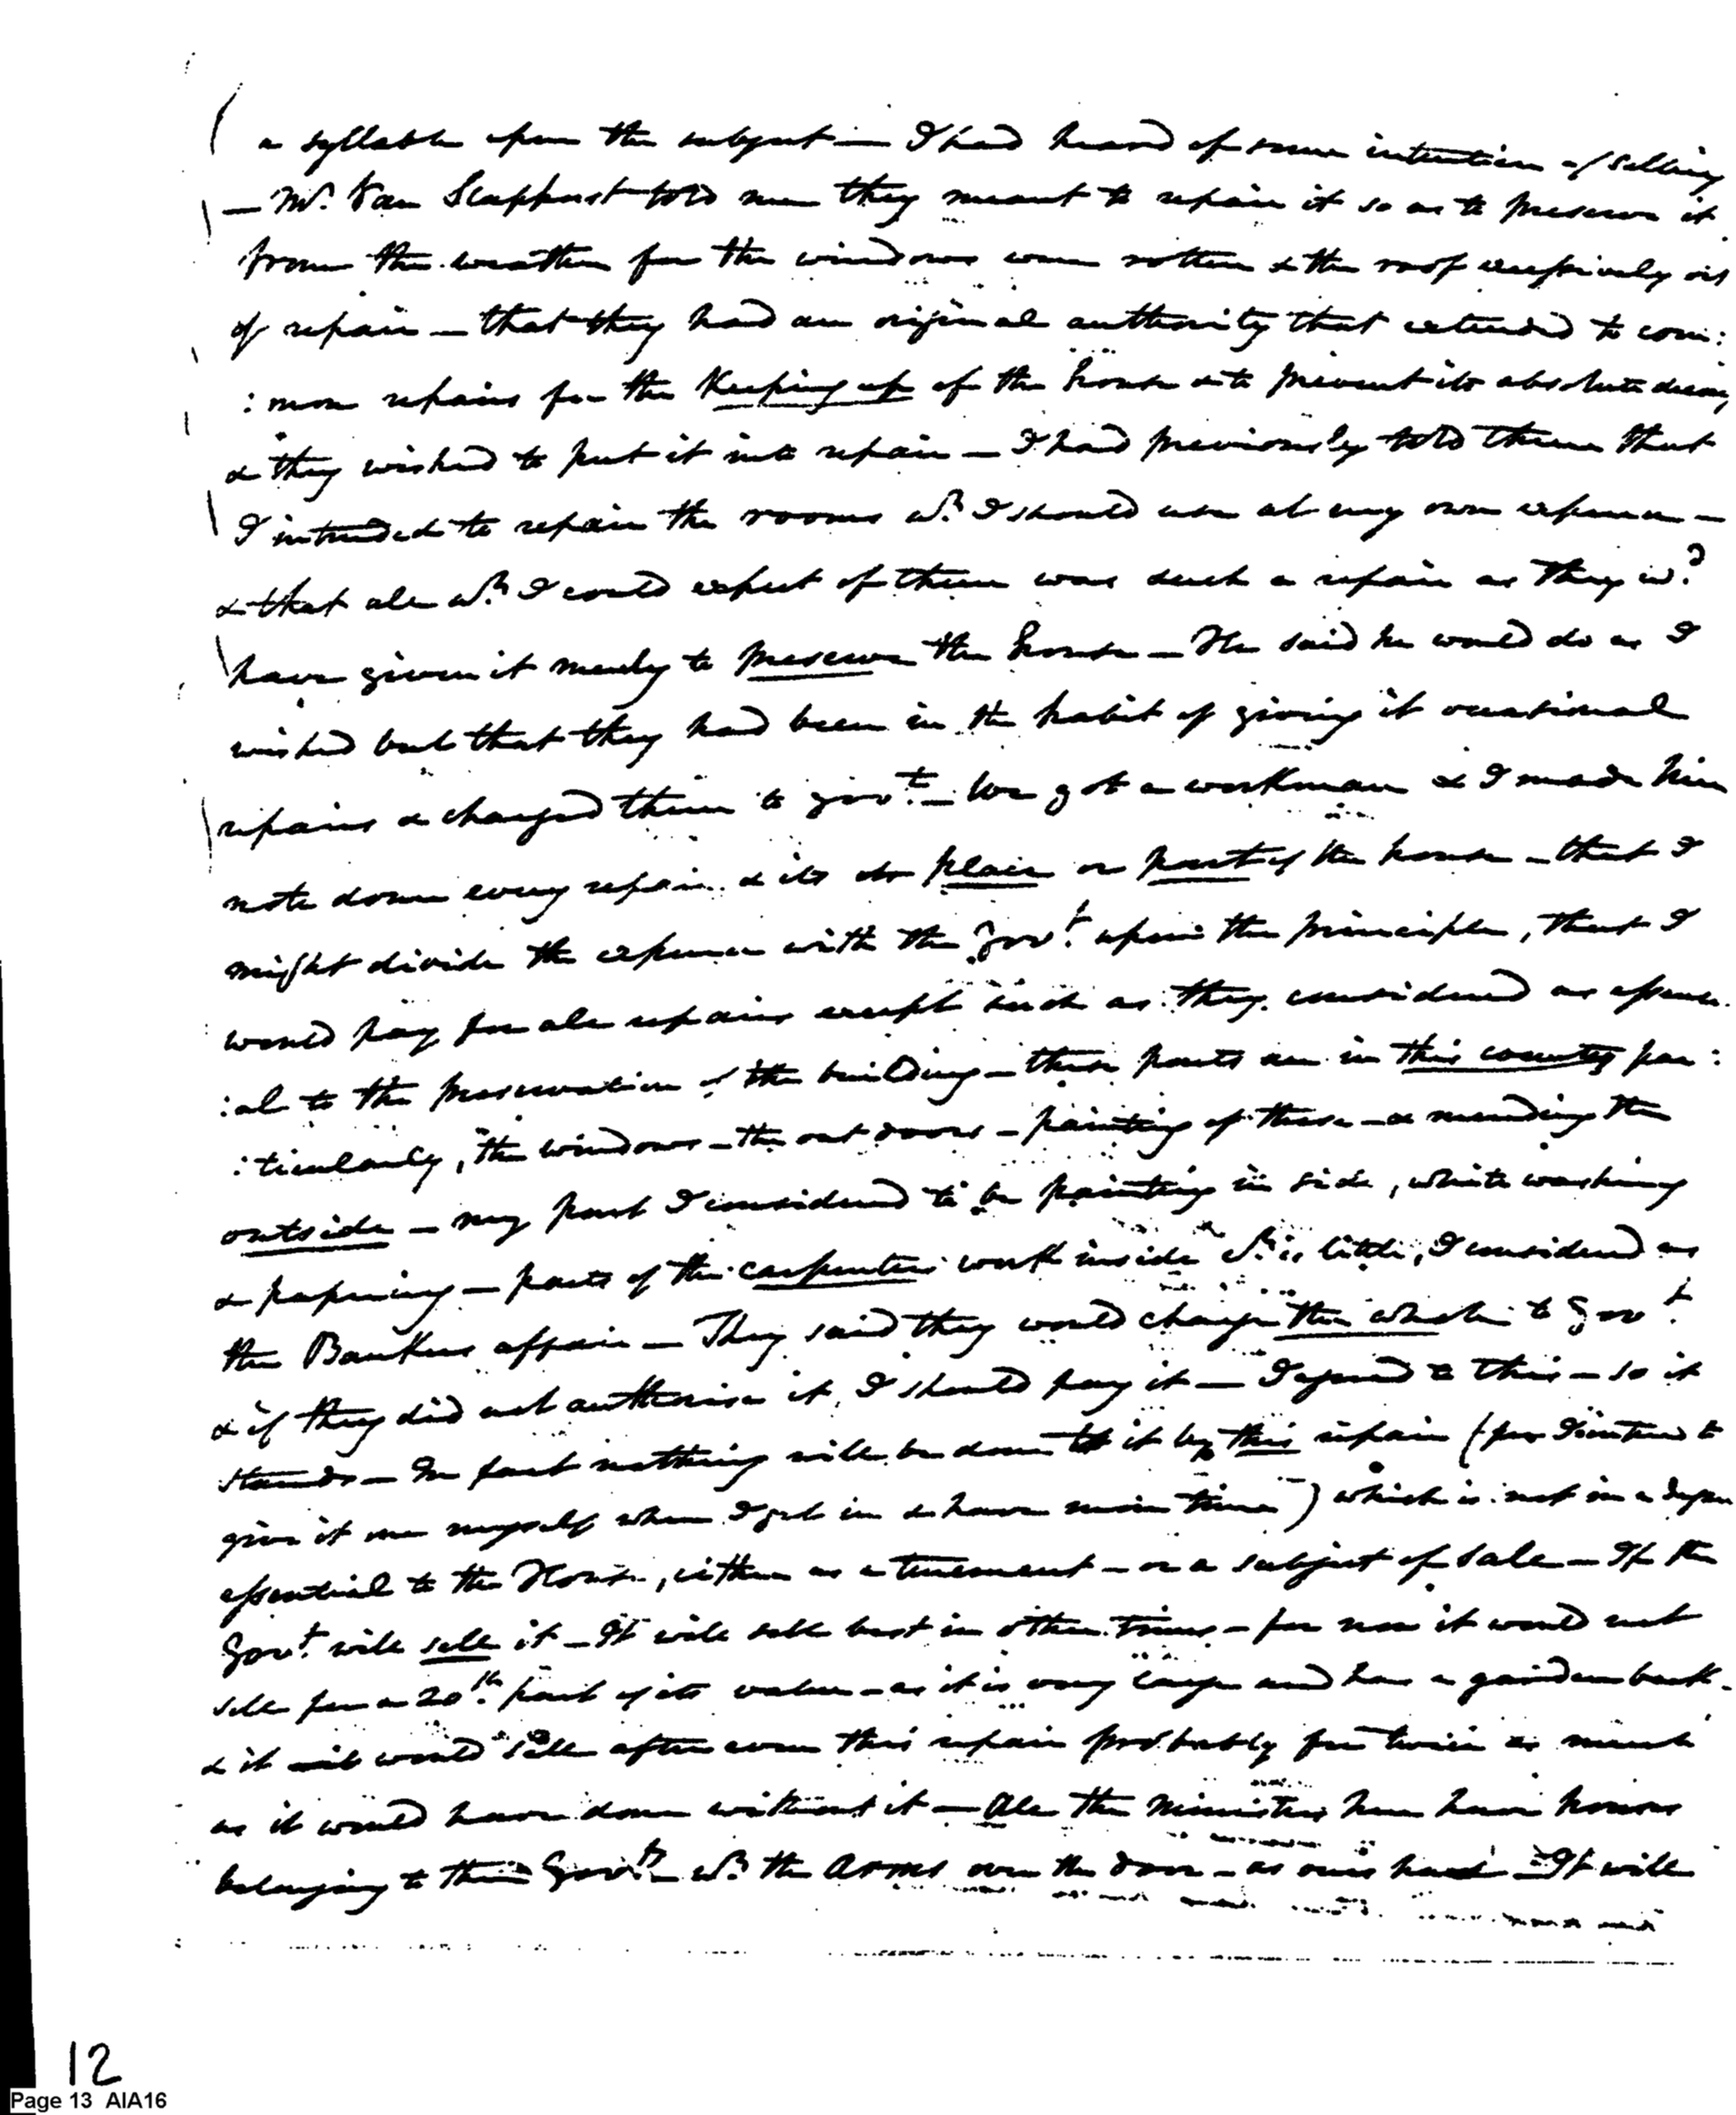 a syllable upon the subject — I had heard of some intention of selling
— Mr. Van Staphorst told me they meant to repair it so as to preserve it
from the weather for the windows were rotten & the roof excessively out
of repair — that they had an original authority that extended to com:
:mon repairs for the Keeping up of the house & to prevent its absolute decay
& they wished to put it into repair — I had previously told them that
I intended to repair the rooms wh. I should use at my own expence —
& that all wh. I could expect of them was such a repair as they wd.
have given it merely to preserve the house — He said he would do as I
wished but that they had been in the habit of giving it occasional
repairs & charged them to govt. — We got a workman & I made him
note down every repair & its place or part of the house — that I
might divide the expence with the Govt. upon the principle, that I
would pay for all repairs except such as they considered as essenti
:al to the preservation of the building — these parts are in this country par:
:ticularly, the windows — the out doors — painting of these — & mending the
outside — my part I considered to be painting in side, white washing
& papering — parts of the carpenters work inside wh. is little, I considered as
the Bankers affair — They said they would charge the whole to Govt.
& if they did not authorise it, I should pay it — I agreed to this — so it
stands — In fact nothing will be done to it by this repair (for I intend to
give it one myself when I get in & have more time) which is not in a degree
essential to the House, either as a tenement — or a subject of sale — If the
Govt. will sell it — It will sell best in other times — for now it would not
sell for a 20th. part of its value — as it is very large and has a garden back.
& it would sell after even this repair probably for twice as much
as it would have done without it — All the Ministers here have houses
belonging to their Govts. — wh. the Arms over the door — as ours had — It will
12
Page 13 AIA16